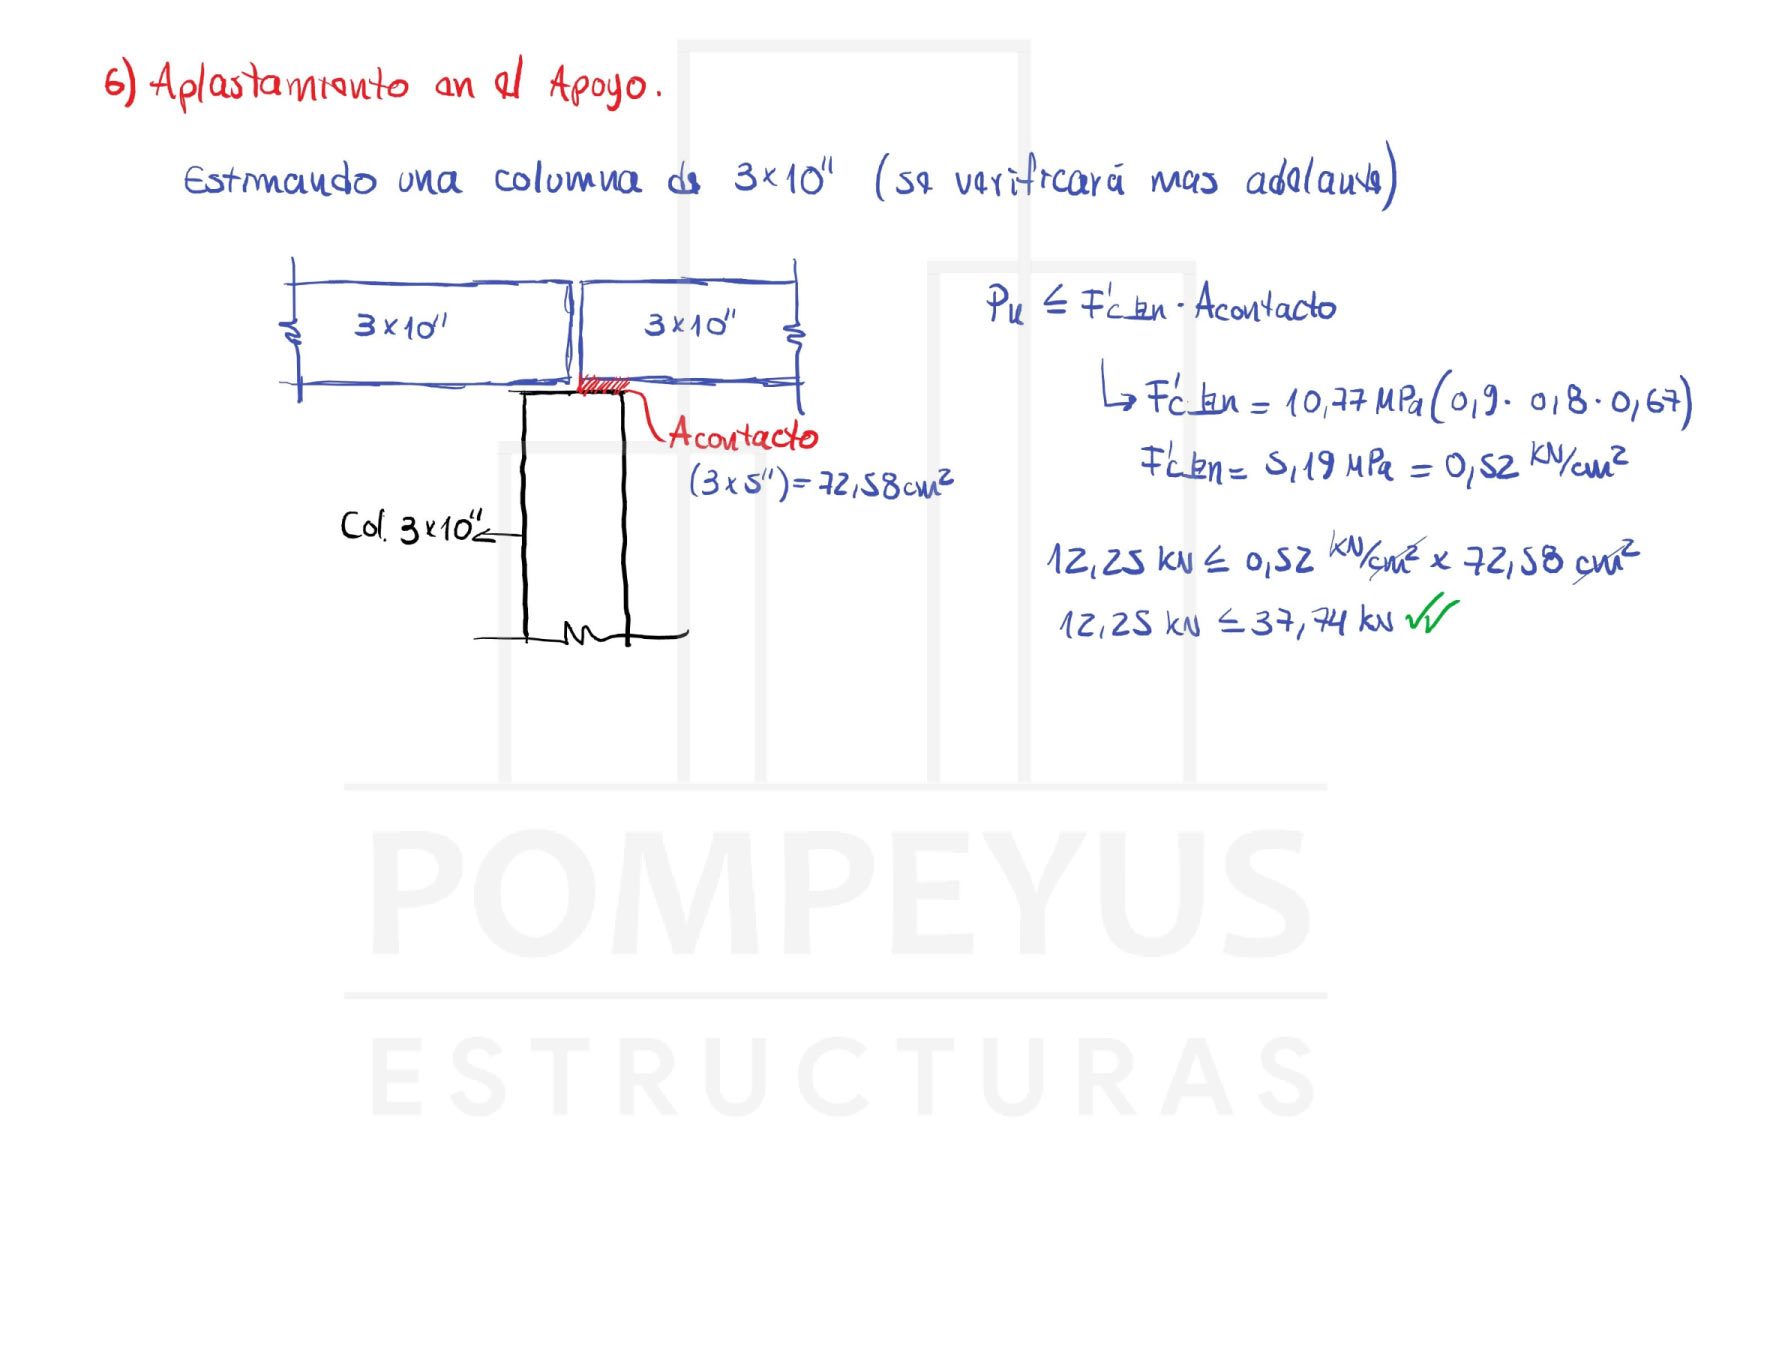 6) Aplastamiento en el Apoyo.
Estimando una columna de 3x10" (se verificará mas adelante)
3x10"
3x10"
Acontacto
(3x5")=72,58cm²
Col. 3x10"
Pu ≤ F'c_en · Acontacto
↳ F'c_en = 10,77 MPa (0,9 · 0,8 · 0,67)
F'c_en = 5,19 MPa = 0,52 kN/cm²
12,25 kN ≤ 0,52 kN/cm² x 72,58 cm²
12,25 kN ≤ 37,74 kN ✓✓
POMPEYUS
ESTRUCTURAS